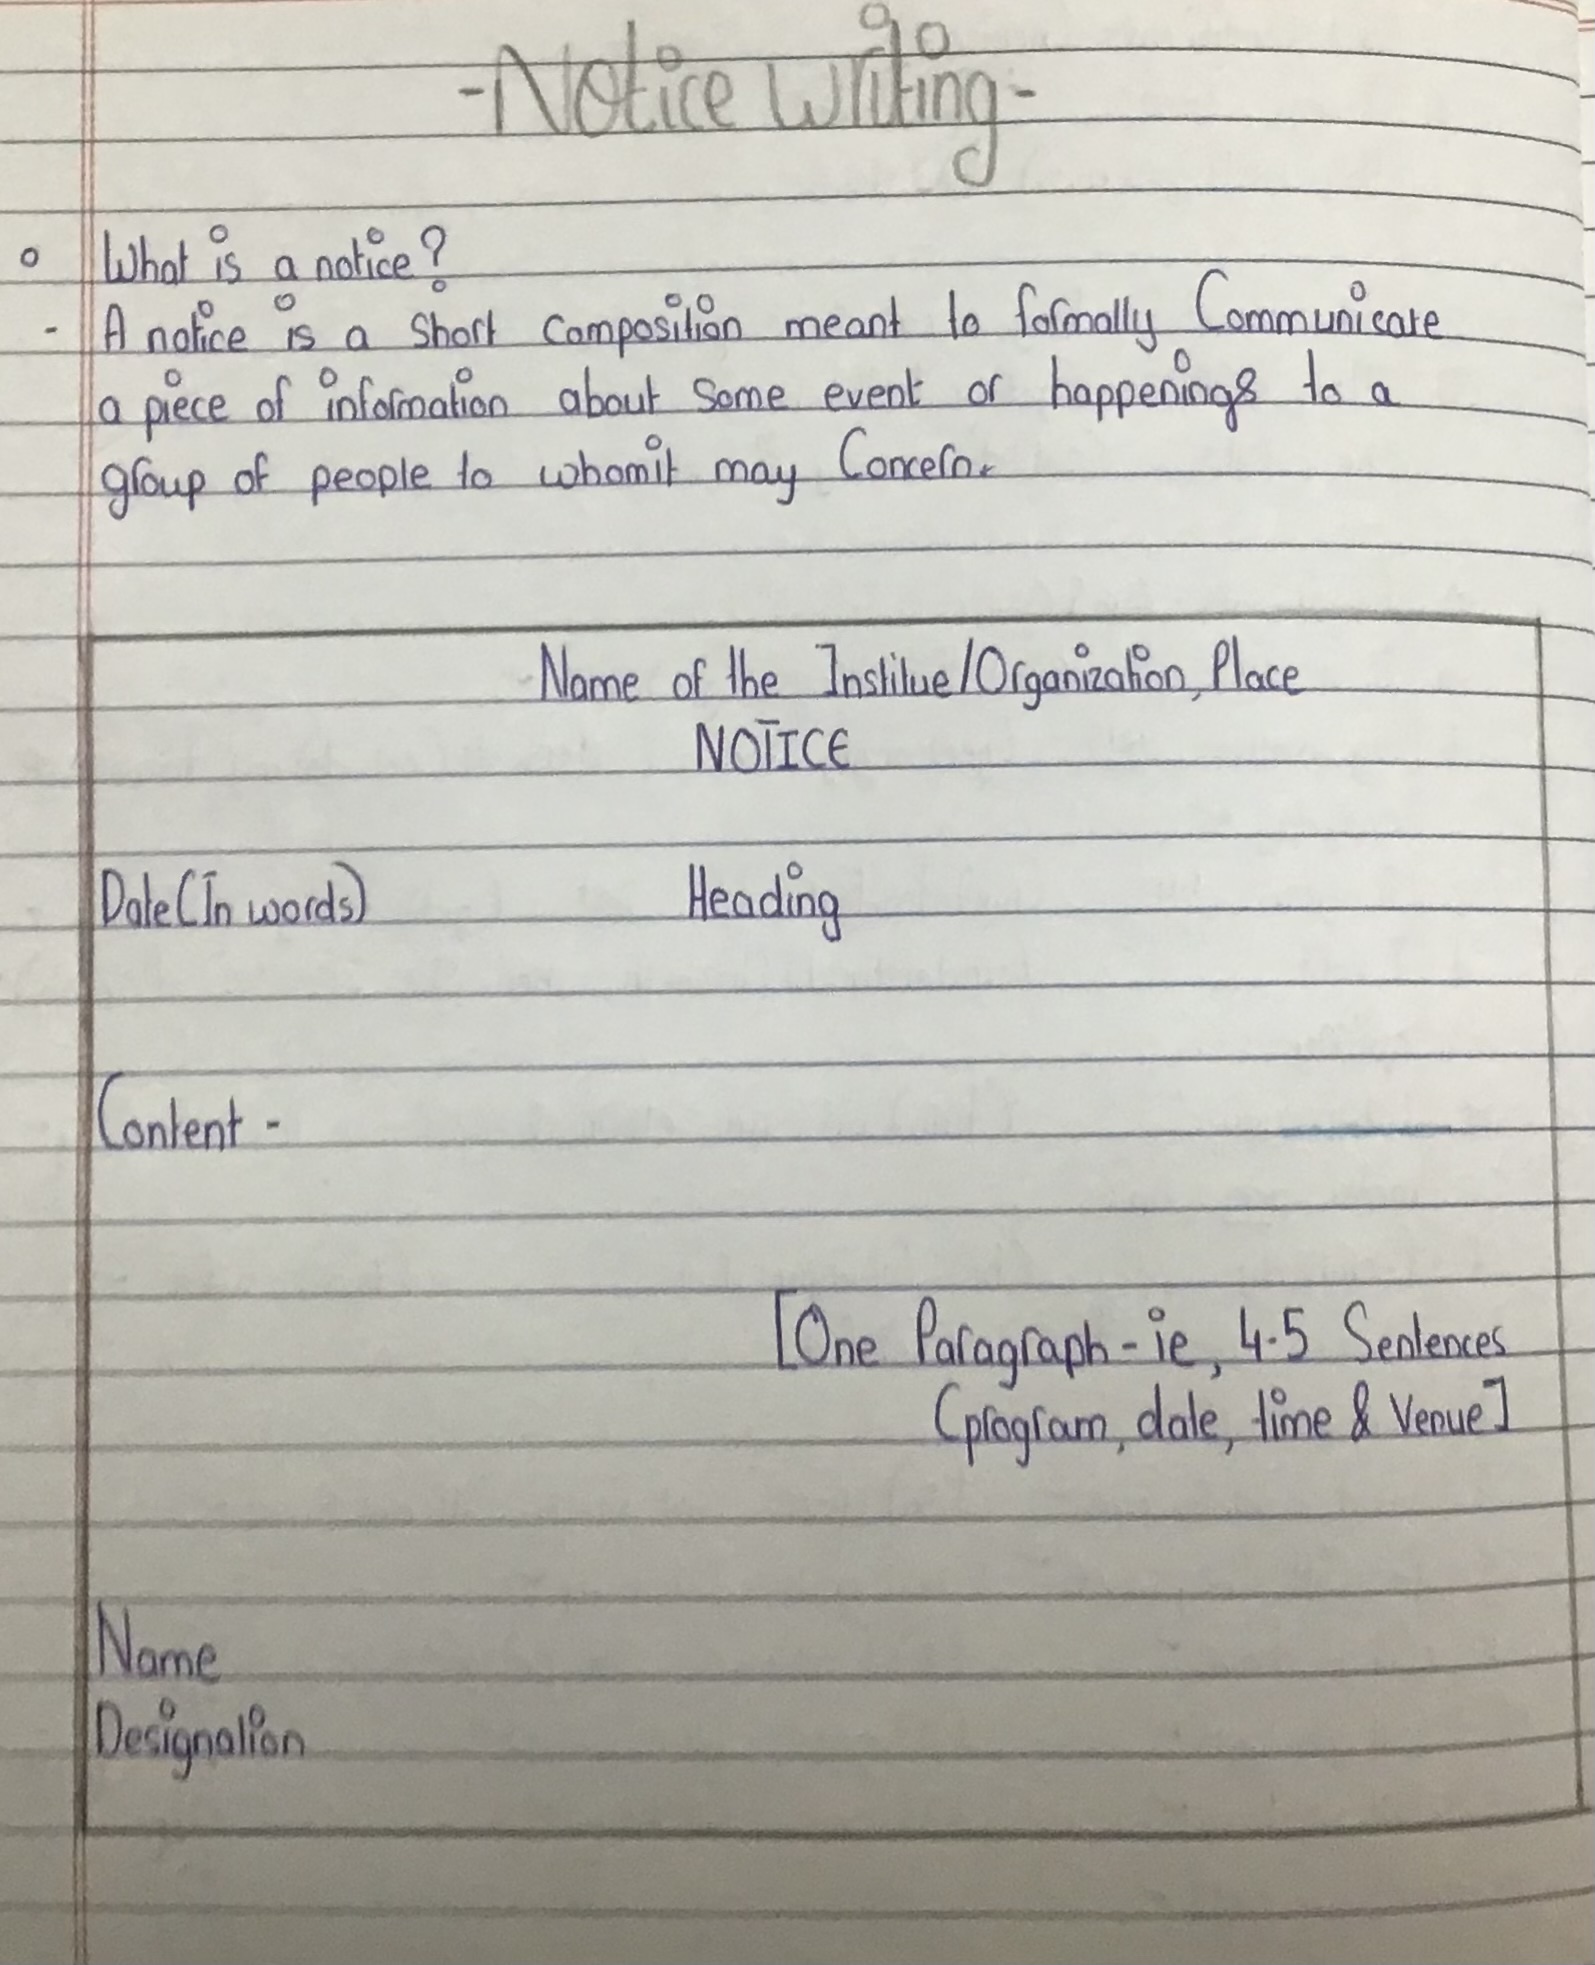 -Notice Writing-
What is a notice?
- A notice is a Short Composition meant to formally Communicate
a piece of information about Some event or happenings to a
group of people to whomit may Concern.
Name of the Institue/Organization, Place
NOTICE
Date(In words) Heading
Content -
[One Paragraph - ie, 4-5 Sentences
(program, date, time & Venue]
Name
Designation